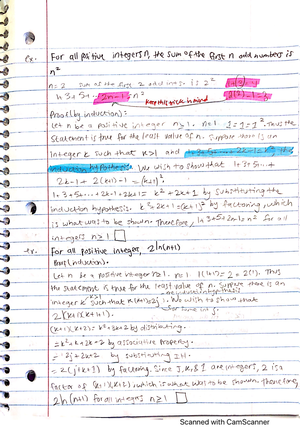 ex. For all positive integers n, the sum of the first n odd numbers is
n²
n=2 sum of the first 2 odd nums is 2²
1+3+5+... 2n-1 = n²
keep this trick in mind
Proof (by induction):
Let n be a positive integer n≥1. n=1 1=1². Thus the
statement is true for the least value of n. Suppose there is an
integer k such that k≥1 and 1+3+5+... 2k-1 = k²
induction hypothesis. We wish to show that 1+3+5+...+
2k-1 + 2(k+1)-1 = (k+1)²
1+3+5+...+2k-1+2k+1 = k²+2k+1 by substituting the
induction hypothesis. k²+2k+1=(k+1)² by factoring, which
is what was to be shown. Therefore, 1+3+5+2n-1=n² for all
integers n≥1 □
ex. For all positive integer, 2|n(n+1)
Proof (induction).
Let n be a positive integer n≥1. n=1 1(1+1)=2=2(1). Thus
the statement is true for the least value of n. Suppose there is an
integer k such that k(k+1)=2j. We wish to show that
for some int j.
2|(k+1)(k+1+1).
(k+1)(k+2)= k²+3k+2 by distributing.
=k²+k+2k+2 by associative property.
=2j+2k+2 by substituting IH.
=2(j+k+1) by factoring. Since j, k, & 1 are integers, 2 is a
factor of (k+1)(k+2), which is what was to be shown. Therefore,
2|n(n+1) for all integers n≥1 □
Scanned with CamScanner